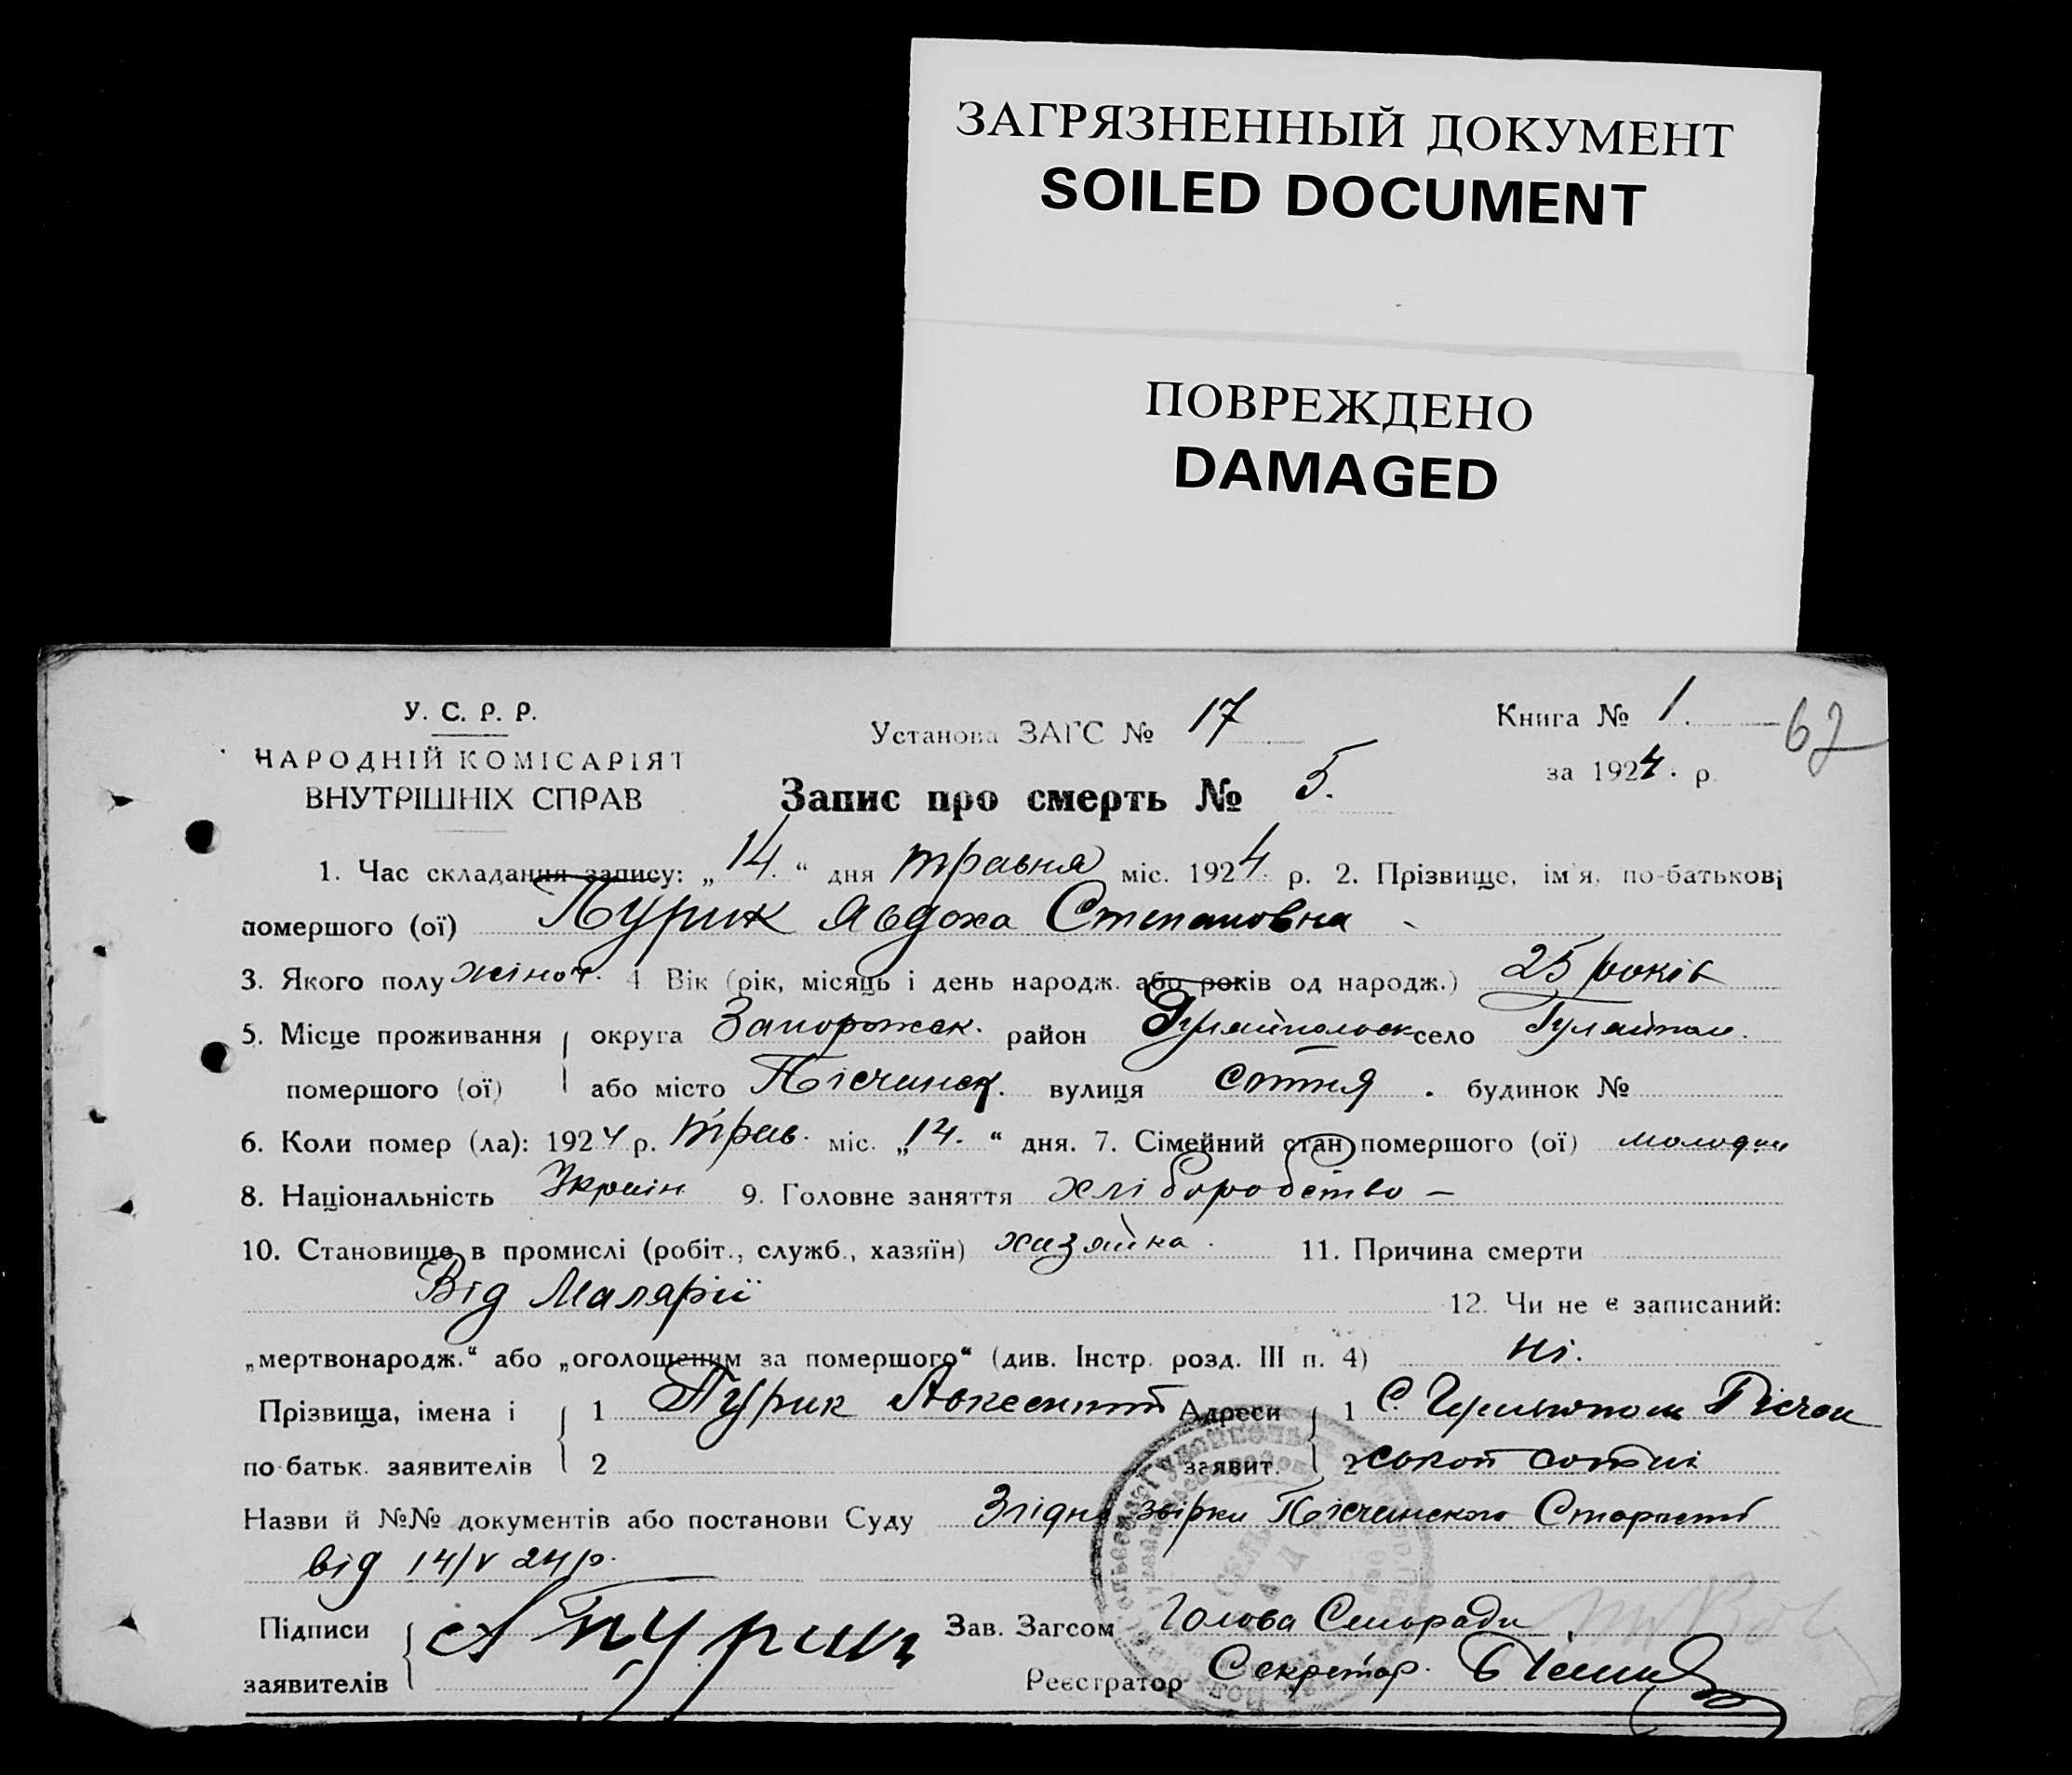 ЗАГРЯЗНЕННЫЙ ДОКУМЕНТ
SOILED DOCUMENT
ПОВРЕЖДЕНО
DAMAGED
У. С. Р. Р.
НАРОДНІЙ КОМІСАРІЯТ
ВНУТРІШНІХ СПРАВ
Установа ЗАГС № 17
Книга № 1.
62
за 1924. р.
Запис про смерть № 5.
1. Час складання запису: „14.“ дня травня міс. 1924. р. 2. Прізвище, ім'я, по-батькові
помершого (ої) Пурик Явдоха Степановна
3. Якого полу жіноч. 4. Вік (рік, місяць і день народж. або років од народж.) 25 років
5. Місце проживання округа Запорожськ. район Гуляйпольск село Гуляйполе.
помершого (ої) або місто Пісчинск. вулиця сотня. будинок №
6. Коли помер (ла): 1924 р. трав. міс. „14.“ дня. 7. Сімейний стан помершого (ої)
8. Національність Україн. 9. Головне заняття хліборобство —
10. Становище в промислі (робіт., служб., хазяїн) хазяйка. 11. Причина смерти
Від Малярії 12. Чи не є записаний:
„мертвонародж.“ або „оголошеним за помершого“ (див. Інстр. розд. III п. 4) ні.
Прізвища, імена і 1 Пурик Авксентій Адреси 1 С.
по-батьк. заявителів 2 заявит. 2 сотні
Назви й №№ документів або постанови Суду Пісчинского
від 14/V 24 р.
Підписи А Пурик Зав. Загсом Голова
заявителів Реєстратор Секретар.